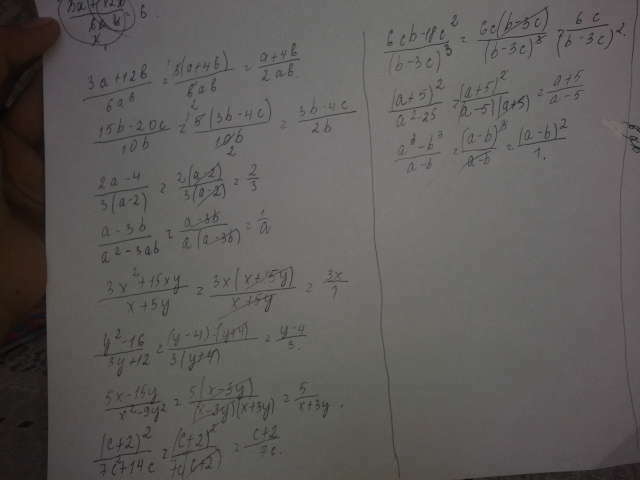 (3a+12b)/(6ab) = (3(a+4b))/(6ab) = (a+4b)/(2ab).
(15b-20c)/(10b) = (5(3b-4c))/(10b) = (3b-4c)/(2b)
(2a-4)/(3(a-2)) = (2(a-2))/(3(a-2)) = 2/3
(a-3b)/(a²-3ab) = (a-3b)/(a(a-3b)) = 1/a
(3x²+15xy)/(x+5y) = (3x(x+15y))/(x+5y) = 3x/1
(y²-16)/(3y+12) = ((y-4)(y+4))/(3(y+4)) = (y-4)/3.
(5x-15y)/(x²-9y²) = (5(x-3y))/((x-3y)(x+3y)) = 5/(x+3y).
(c+2)²/(7c²+14c) = (c+2)²/(7c(c+2)) = (c+2)/(7c).
(6cb-18c²)/(b-3c)³ = (6c(b-3c))/(b-3c)³ = 6c/(b-3c)².
(a+5)²/(a²-25) = (a+5)²/(a-5)(a+5) = (a+5)/(a-5)
(a³-b³)/(a-b) = (a-b)³/(a-b) = (a-b)²/1.